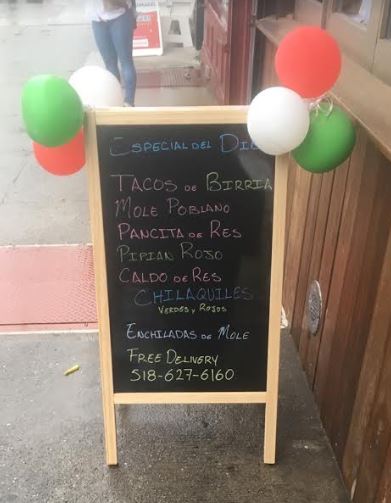 ESPECIAL DEL DIA
TACOS DE BIRRIA
MOLE POBLANO
PANCITA DE RES
PIPIAN ROJO
CALDO DE RES
CHILAQUILES
VERDES Y ROJOS
ENCHILADAS DE MOLE
FREE DELIVERY
518-627-6160